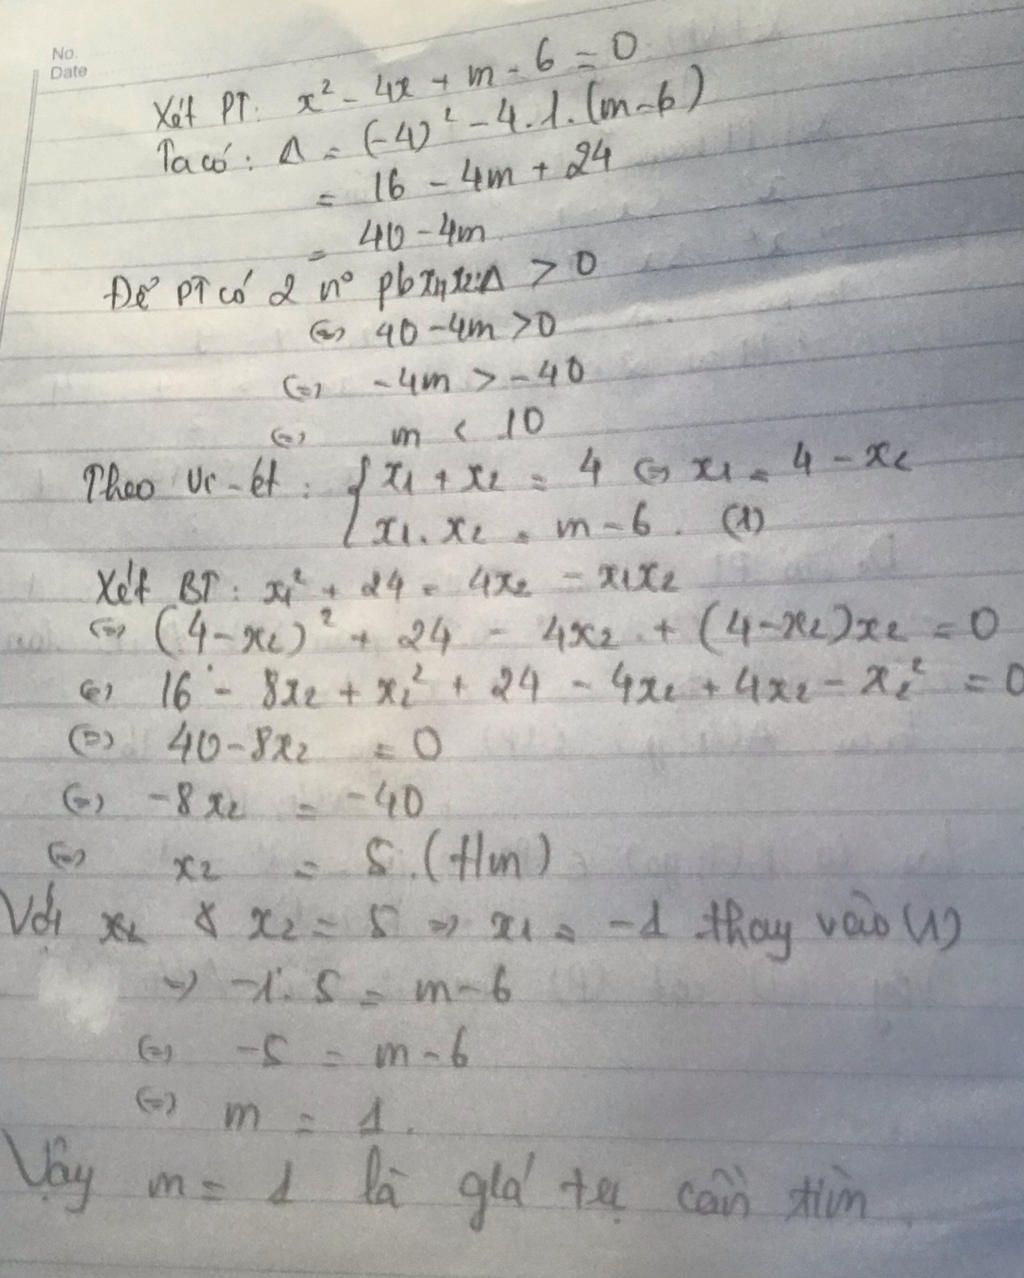 No.
Date
Xét PT: x² - 4x + m - 6 = 0
Ta có: Δ = (-4)² - 4.1.(m-6)
= 16 - 4m + 24
= 40 - 4m
Để PT có 2 n° pb x₁, x₂: Δ > 0
(=) 40 - 4m > 0
(=) -4m > -40
(=) m < 10
Theo Vi-ét: { x₁ + x₂ = 4 (=) x₁ = 4 - x₂
x₁. x₂ = m - 6. (1)
Xét BT: x₁² + 24 = 4x₂ - x₁x₂
(=) (4-x₂)² + 24 - 4x₂ + (4-x₂)x₂ = 0
(=) 16 - 8x₂ + x₂² + 24 - 4x₂ + 4x₂ - x₂² = 0
(=) 40 - 8x₂ = 0
(=) -8x₂ = -40
(=) x₂ = 5. (tm)
Với x₂ = 5 => x₁ = -1 thay vào (1)
=> -1. 5 = m - 6
(=) -5 = m - 6
(=) m = 1.
Vậy m = 1 là giá trị cần tìm.